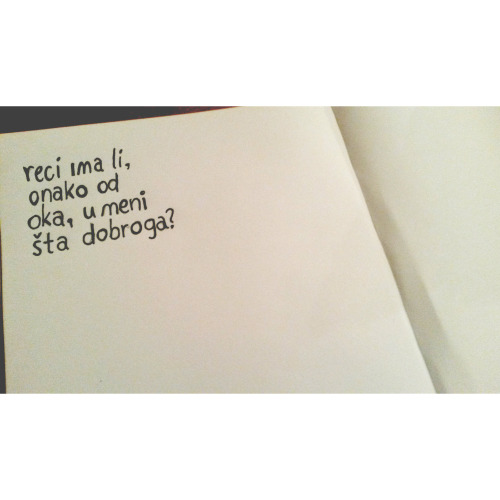 reci ima li,
onako od
oka, u meni
šta dobroga?